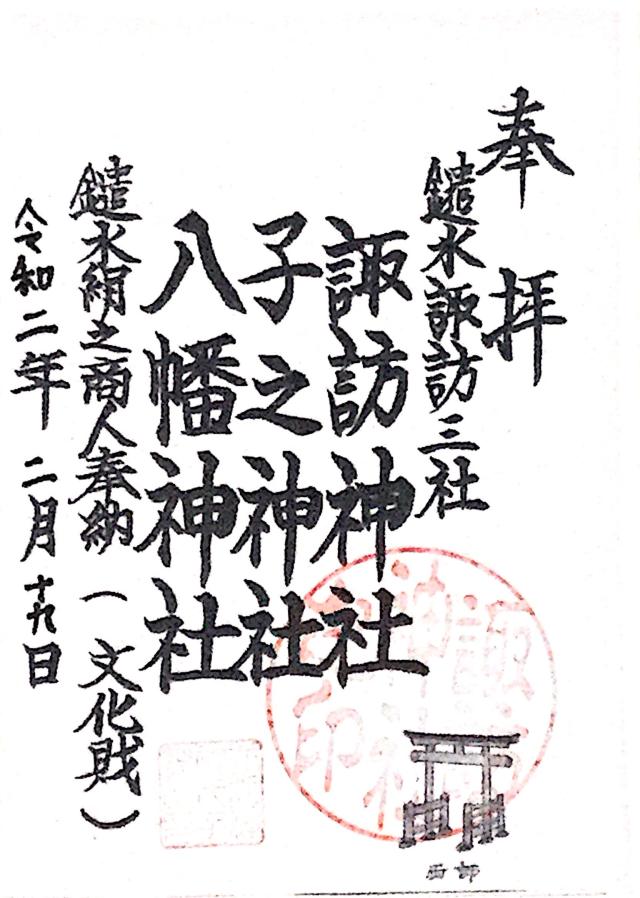 奉拝
鑓水諏訪三社
諏訪神社
子之神社
八幡神社
鑓水絹之商人奉納(文化財)
令和二年二月十九日
西部